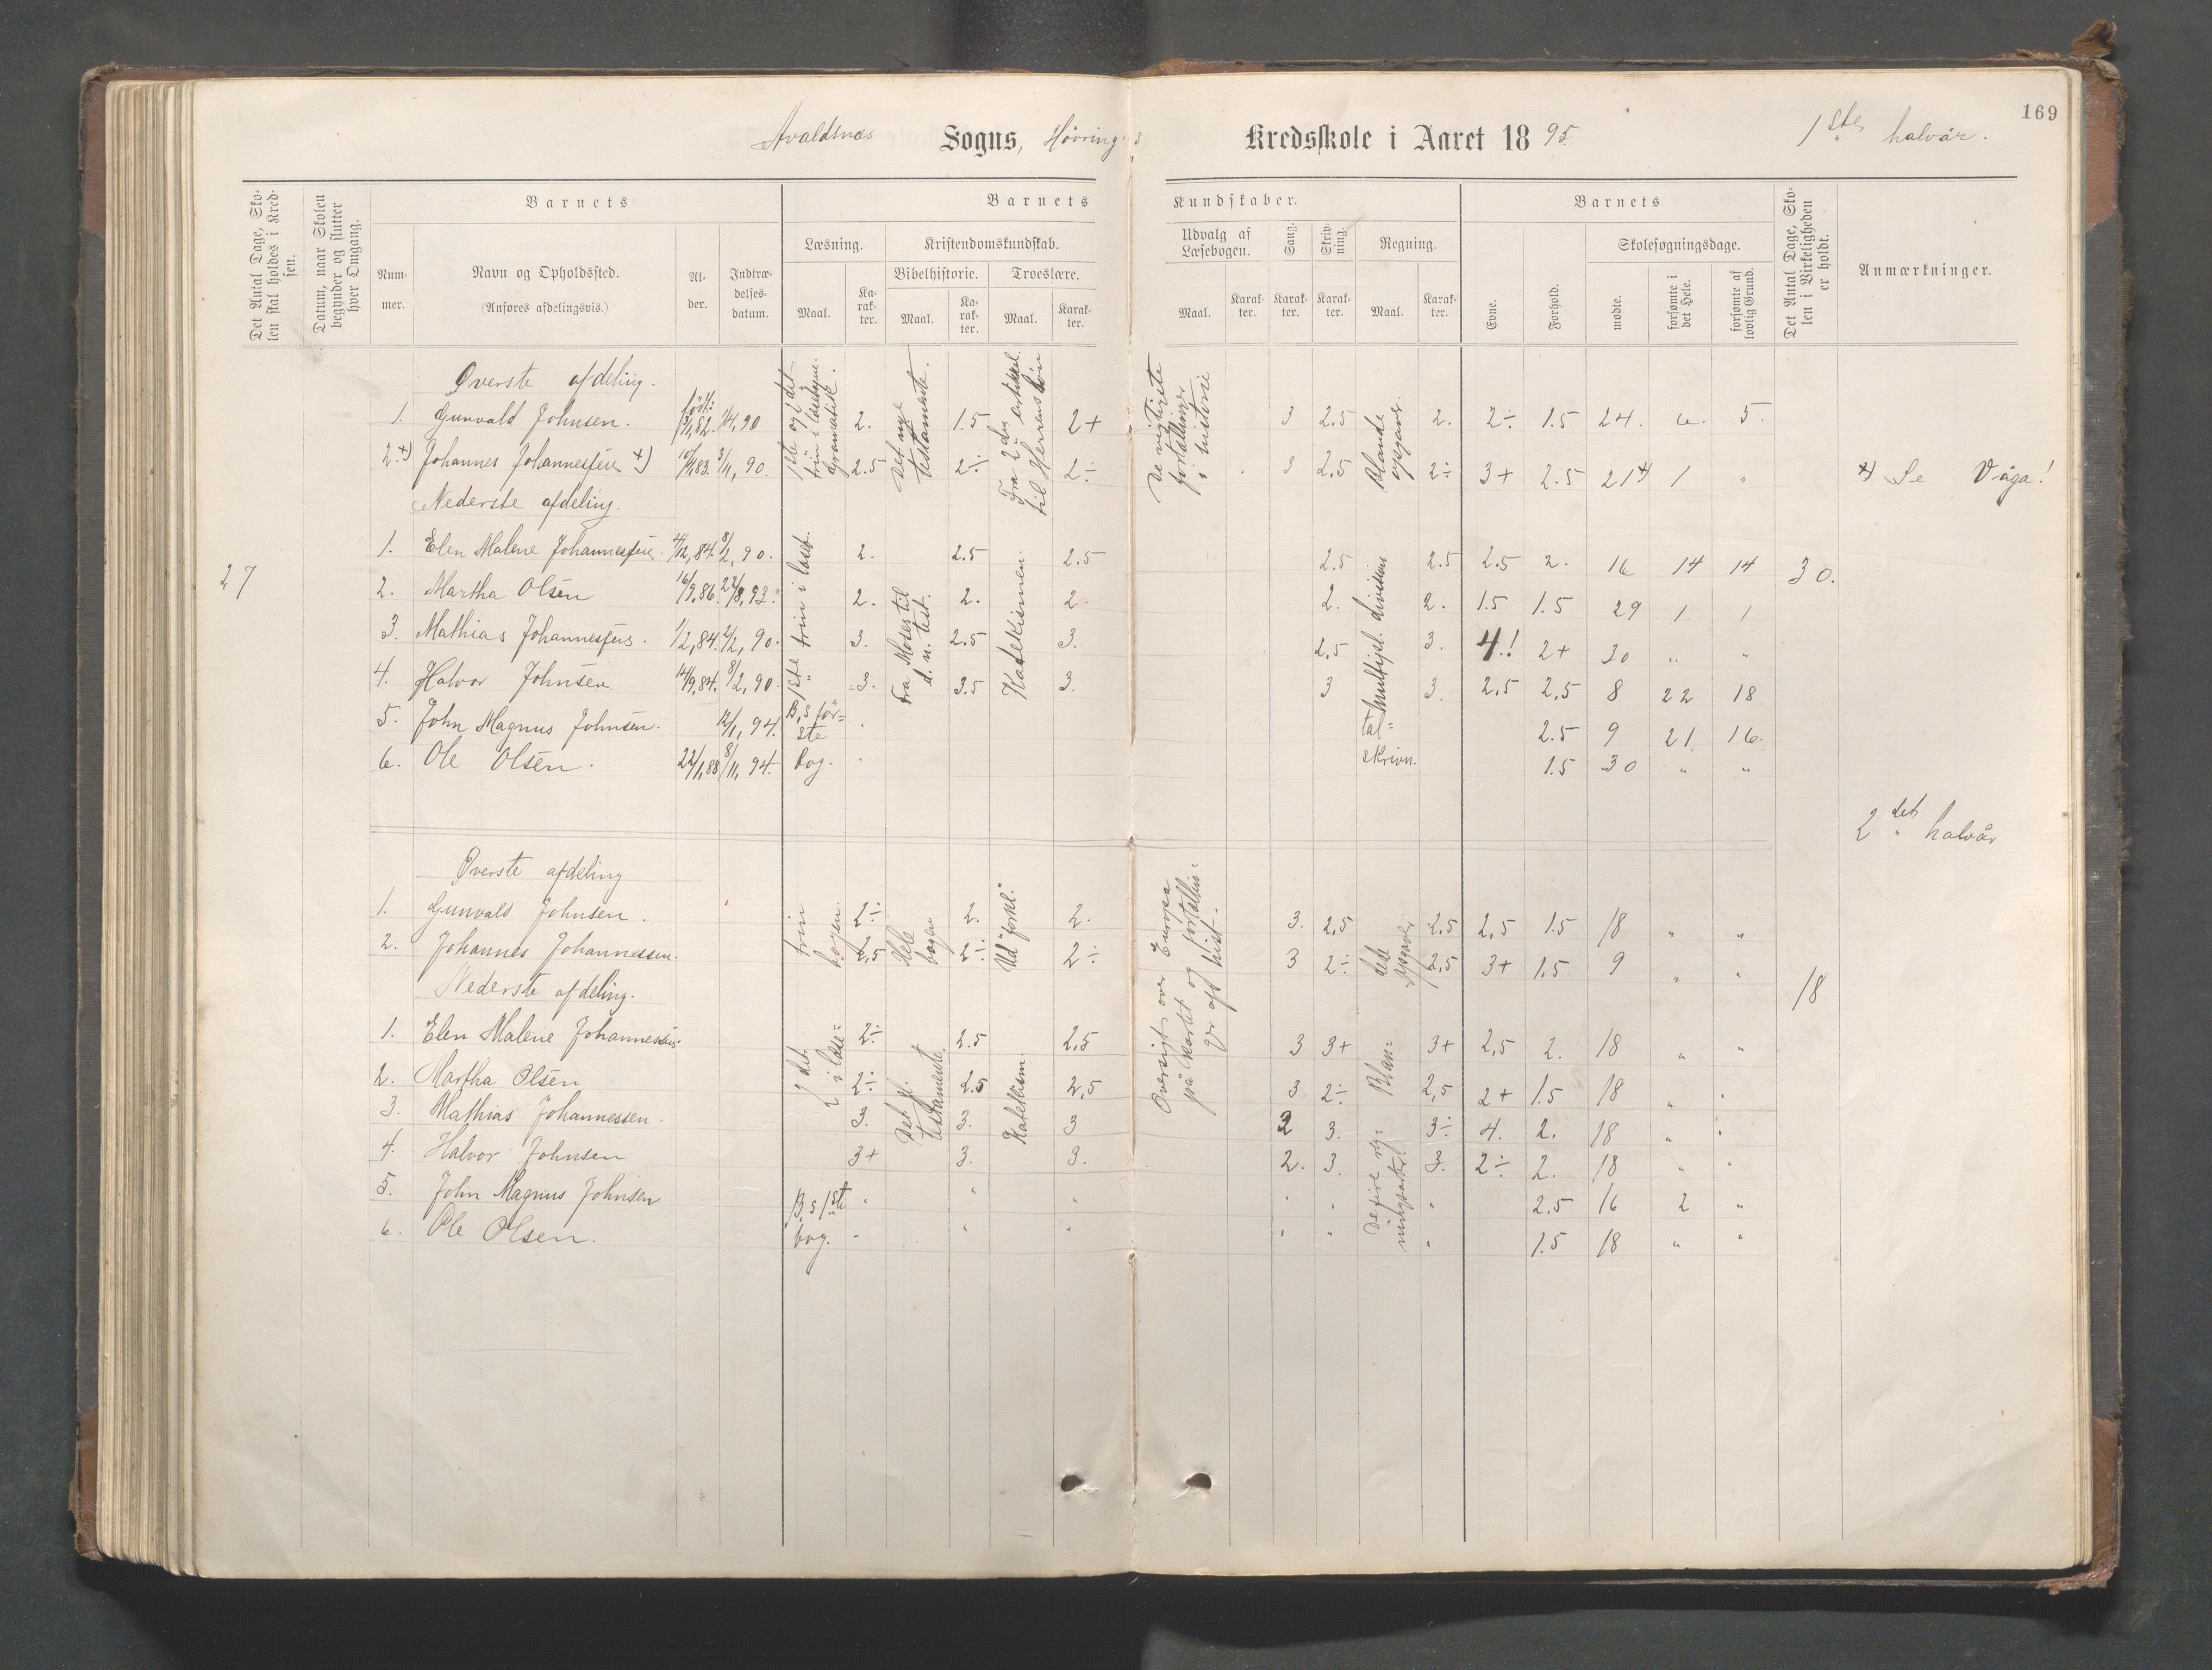 169
Avaldsnæs Sogns, Høvring s Kredsskole i Aaret 1895. 1ste halvår.
Det Antal Dage, Skolen skal holdes i Kredsen.
Datum, naar Skolen begynder og slutter hver Omgang.
Barnets
Barnets Kundskaber.
Barnets
Det Antal Dage, Skolen i Virkeligheden er holdt.
Anmærkninger.
Nummer.
Navn og Opholdssted.
(Anføres afdelingsvis.)
Alder.
Indtrædelsesdatum.
Læsning.
Kristendomskundskab.
Bibelhistorie.
Troeslære.
Udvalg af Læsebogen.
Sang.
Skrivning.
Regning.
Evne.
Forhold.
Skolesøgningsdage.
Maal. Karakter. Maal. Karakter. Maal. Karakter. Maal. Karakter. Karakter. Karakter. Maal. Karakter.
mødte. forsømte i det Hele. forsømte af lovlig Grund.
Øverste afdeling.
1. Gunvald Johnsen. født: 3/1,82. 1/4,90 2. 1.5 2+ 3 2.5 2. 2÷ 1.5 24. 6. 5.
2.+) Johannes Johannessen +) 10/4,83. 3/11,90. 2.5 2÷ 2÷ 3 2.5 2÷ 3+ 2.5 21+ 1 " +) Se Våga!
1ste og 2det trin i læsebogen. Gramatik.
Det nye testamente.
Fra 2den artikkel til Herrens bøn
De vigtigste fortællinger i historie
Blande opgaver.
Nederste afdeling.
1. Elen Malene Johannessen. 4/12,84. 8/2,90. 2. 2.5 2.5 2.5 2.5 2.5 2. 16 14 14
27 30.
2. Martha Olsen 16/9,86. 22/8,93. 2. 2. 2. 2. 2. 1.5 1.5 29 1 1
3. Mathias Johannessen. 1/2,84. 2/2,90. 3. 2.5 3. 2,5 3. 4.! 2+ 30 " "
4. Halvor Johnsen. 14/9,84. 8/2,90. 3. 3.5 3. 3 3. 2,5 2,5 8 22 18
5. John Magnus Johnsen. 12/1,94. 2.5 9 21 16.
6. Ole Olsen. 22/1,88 8/11,94. 1.5 30 " "
1ste trin i læseb.
B,s første bog.
Fra Moses til d. n. test.
Katekismen.
multipl. division
talskrivn.
2det halvår
Øverste afdeling
1. Gunvald Johnsen. 2÷ 2. 2. 3. 2,5 2,5 2,5 1.5 18 " "
2. Johannes Johannessen. 2,5 2÷ 2÷ 3 2÷ 2,5 3+ 1.5 9 " "
Hele bogen
Ud "forkl."
Oversigt over Europa på kartet og fortællinger af hist.
Nederste afdeling. 18
1. Elen Malene Johannessen 2÷ 2.5 2,5 3 3+ 3+ 2,5 2. 18 " "
2. Martha Olsen 2÷ 2.5 2,5 3 2÷ 2,5 2+ 1.5 18 " "
3. Mathias Johannessen. 3. 3. 3 3 3. 3÷ 4. 2. 18 " "
4. Halvor Johnsen 3+ 3. 3. 2. 3. 3. 2÷ 2. 18 " "
5. John Magnus Johnsen " " " " " " 2.5 16 2 "
6. Ole Olsen. " " " " " " 1.5 18 " "
2det trin i læsebogen
B,s 1ste bog.
Det gl. testamente.
Katekism.
Blandede opgaver
De fire regningsarter.